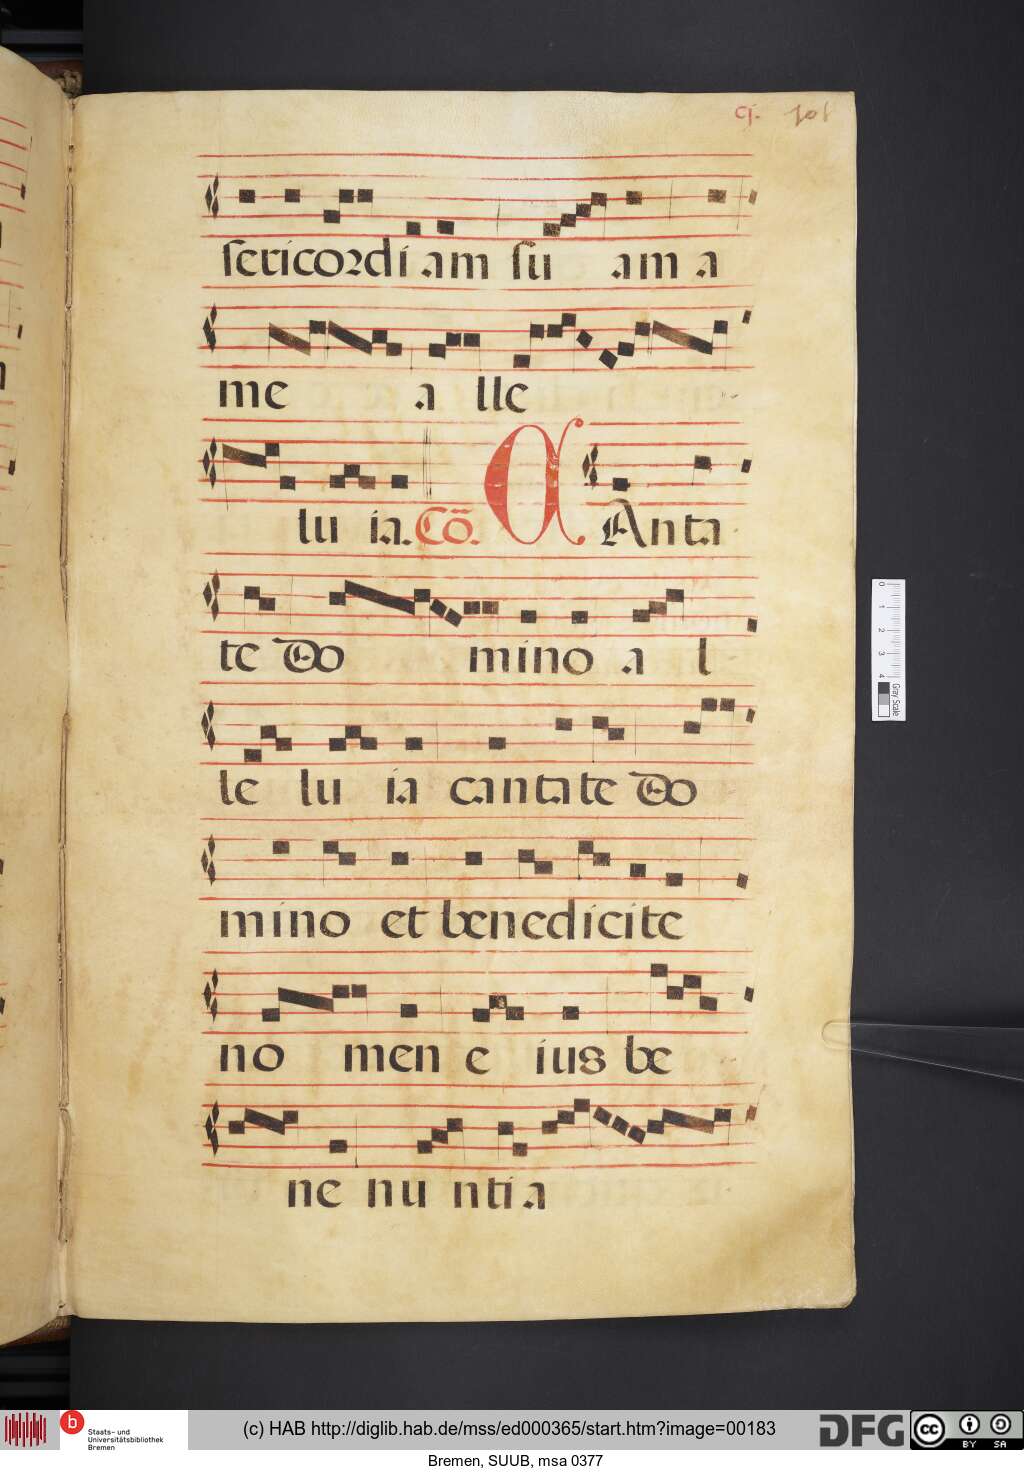 cj. 101
sericordi am su am a
me a lle
lu ia. Cõ. A Anta
te Do mino a l
le lu ia cantate Do
mino et benedicite
no men e ius be
ne nu ntia
0 1 2 3 4 Gray Scale
b Staats- und Universitätsbibliothek Bremen
(c) HAB http://diglib.hab.de/mss/ed000365/start.htm?image=00183
DFG cc BY SA
Bremen, SUUB, msa 0377